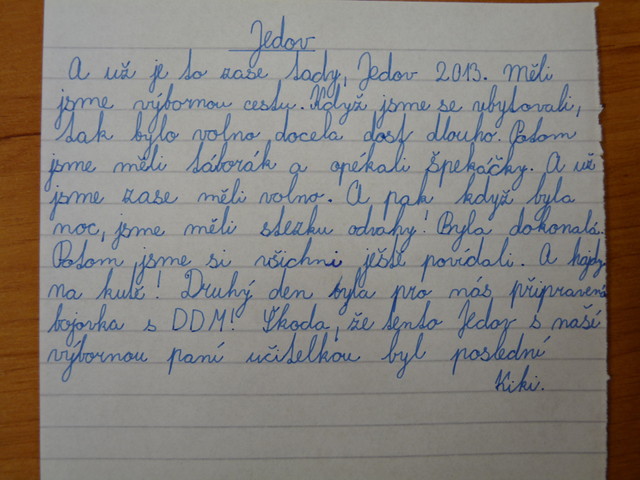 Jedov
A už je to zase tady, Jedov 2013. Měli
jsme výbornou cestu. Když jsme se ubytovali,
tak bylo volno docela dost dlouho. Potom
jsme měli táborák a opékali špekáčky. A už
jsme zase měli volno. A pak když byla
noc, jsme měli stezku odvahy! Byla dokonalá.
Potom jsme si všichni ještě povídali. A hajdy
na kutě! Druhý den byla pro nás připravená
bojovka s DDM! Škoda, že tento Jedov s naší
výbornou paní učitelkou byl poslední
Kiki.